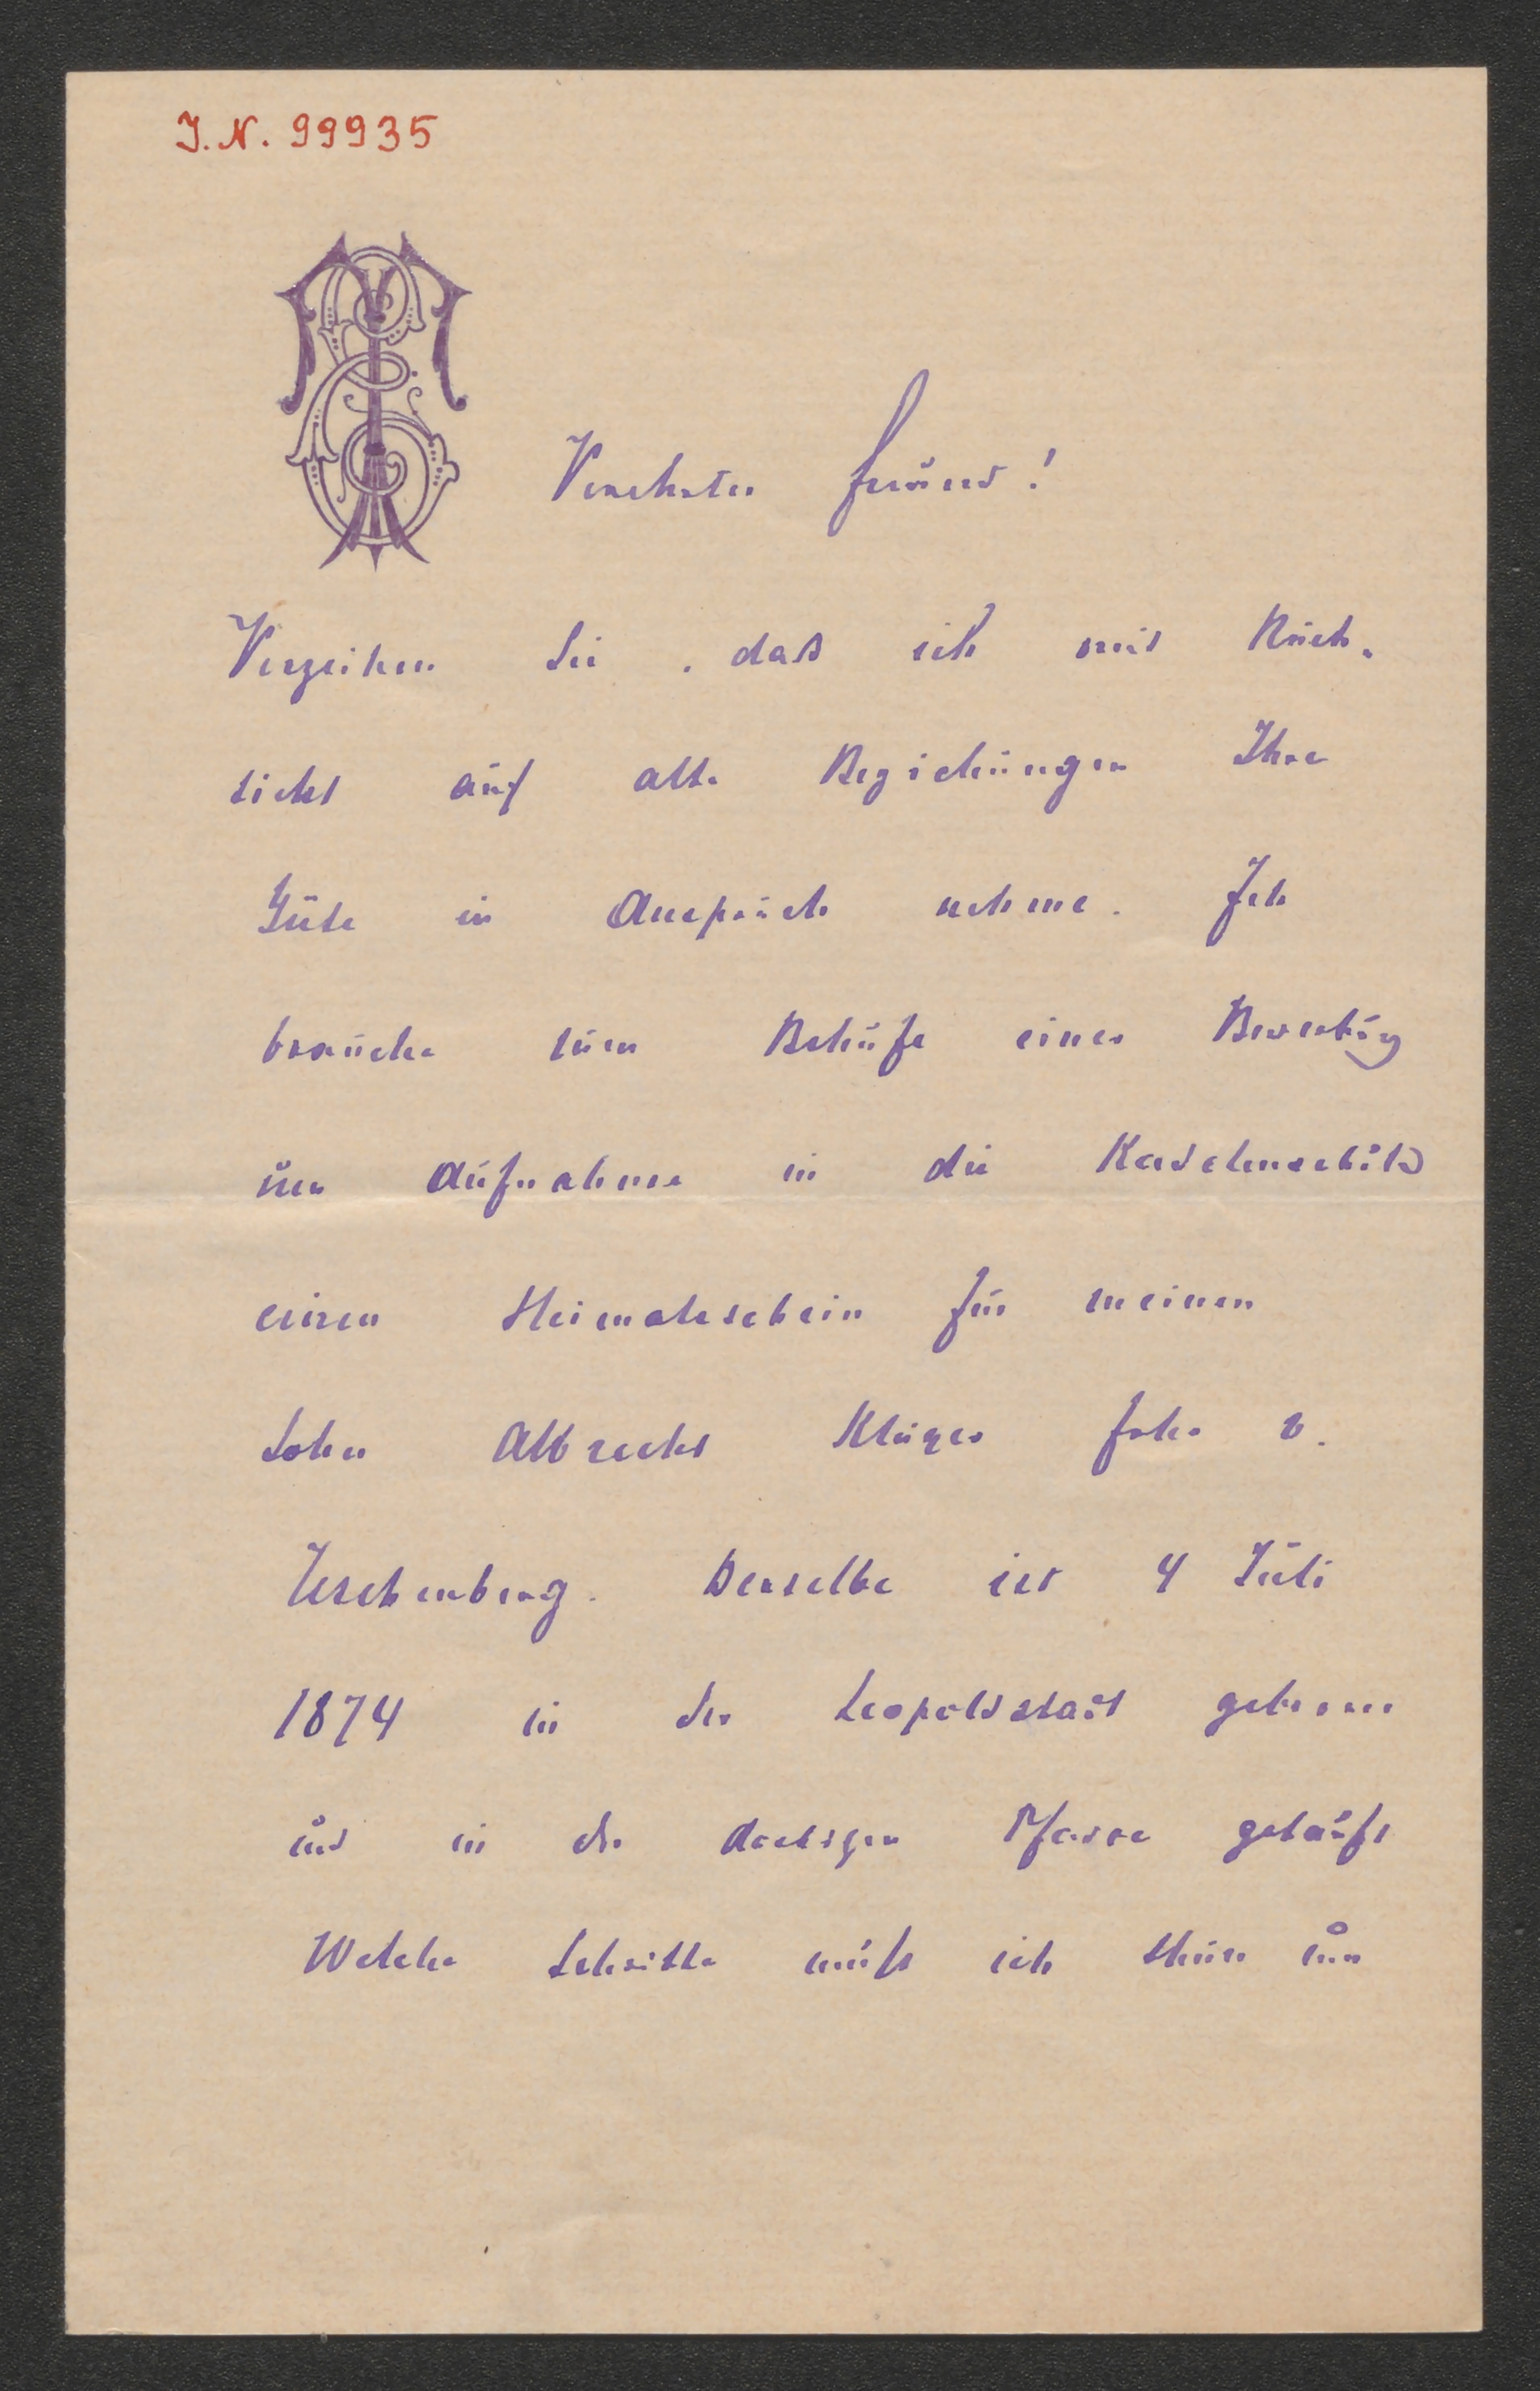 J. N. 99935
Verehrter Freund!
Verzeihen Sie, daß ich mit Rück-
sicht auf alte Beziehungen Ihre
Güte in Anspruch nehme. Ich
brauche zum Behufe einer Bewerbung
um Aufnahme in die Kadetenschule
einen Heimatsschein für meinen
Sohn Albrecht Klüger Frhr v.
Teschenberg. Derselbe ist 4 Juli
1874 in der Leopoldstadt geboren
und in der dortigen Pfarre getauft
Welche Schritte muß ich thun um